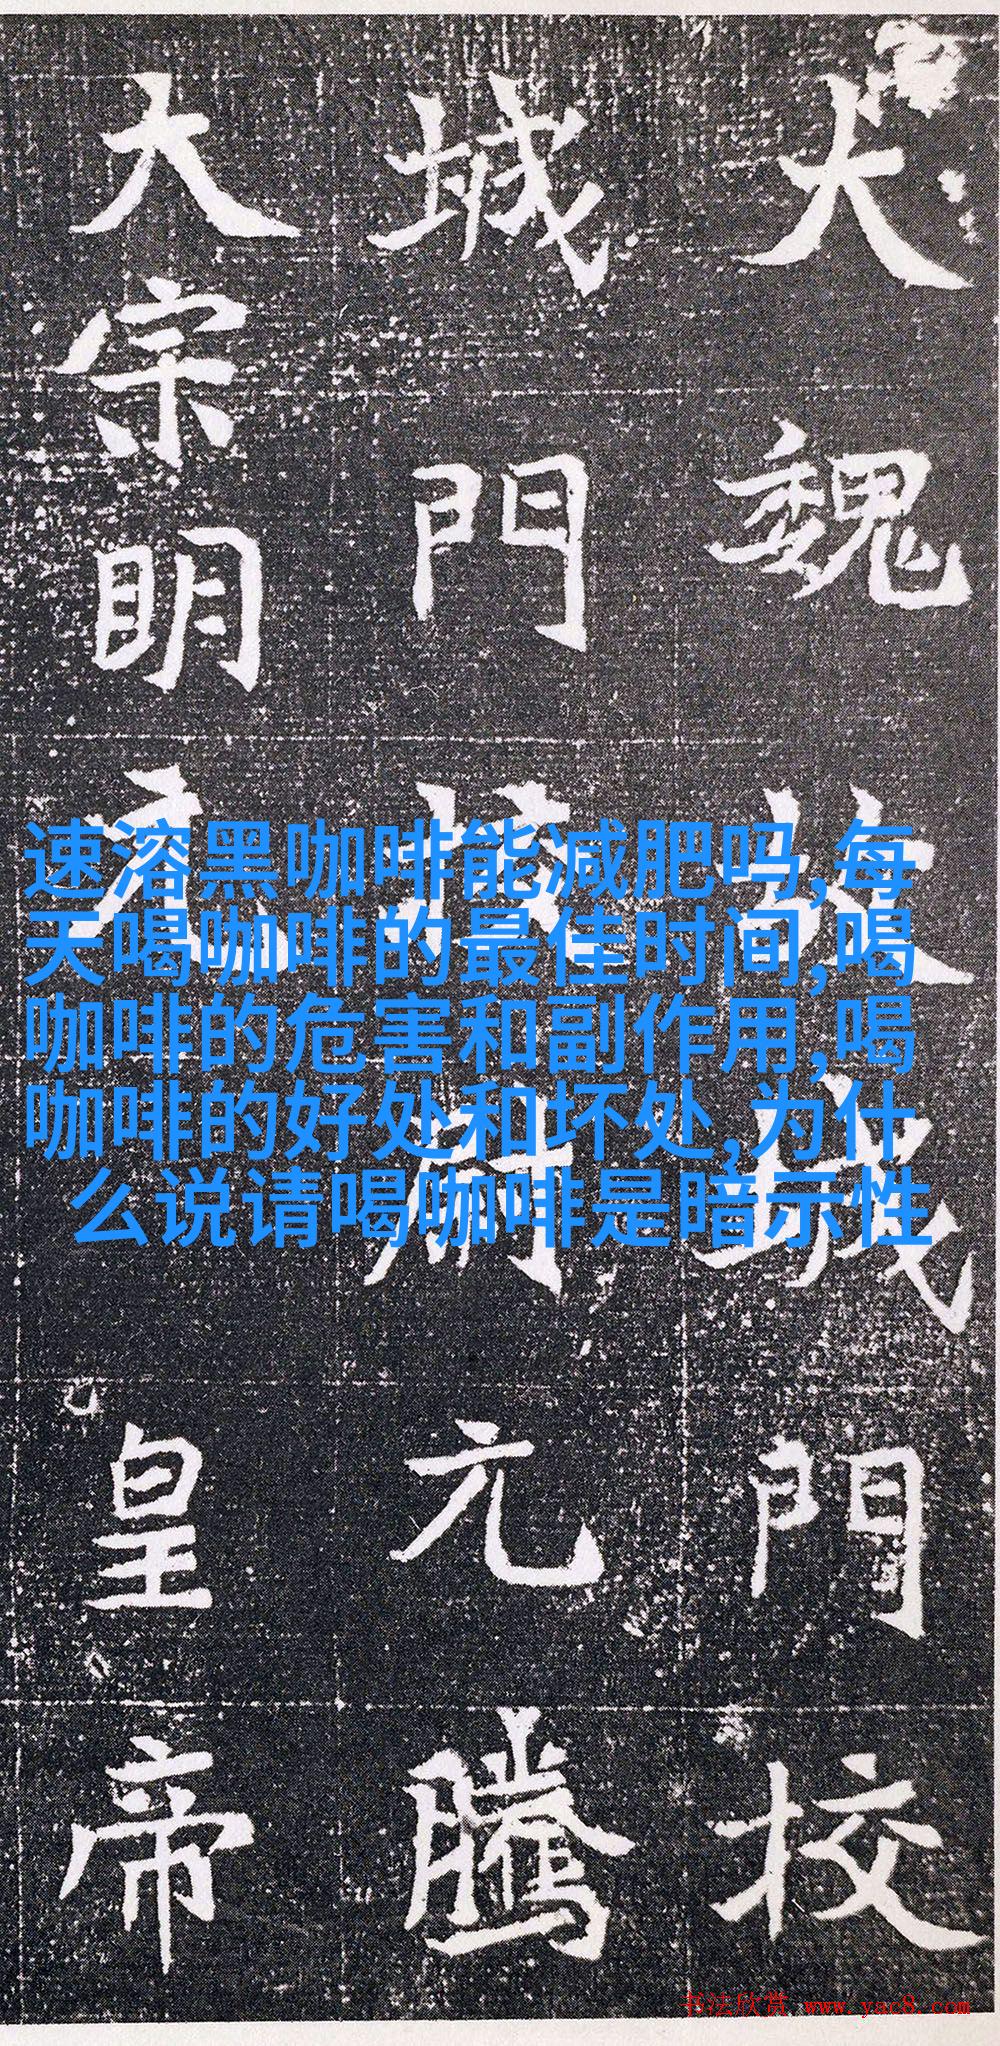 大魏故城門校
城門校尉元騰
大宗明元皇帝
速溶黑咖啡能减肥吗,每
天喝咖啡的最佳时间,喝
咖啡的危害和副作用,喝
咖啡的好处和坏处,为什
么说请喝咖啡是暗示性
书法欣赏 www.yac8.com